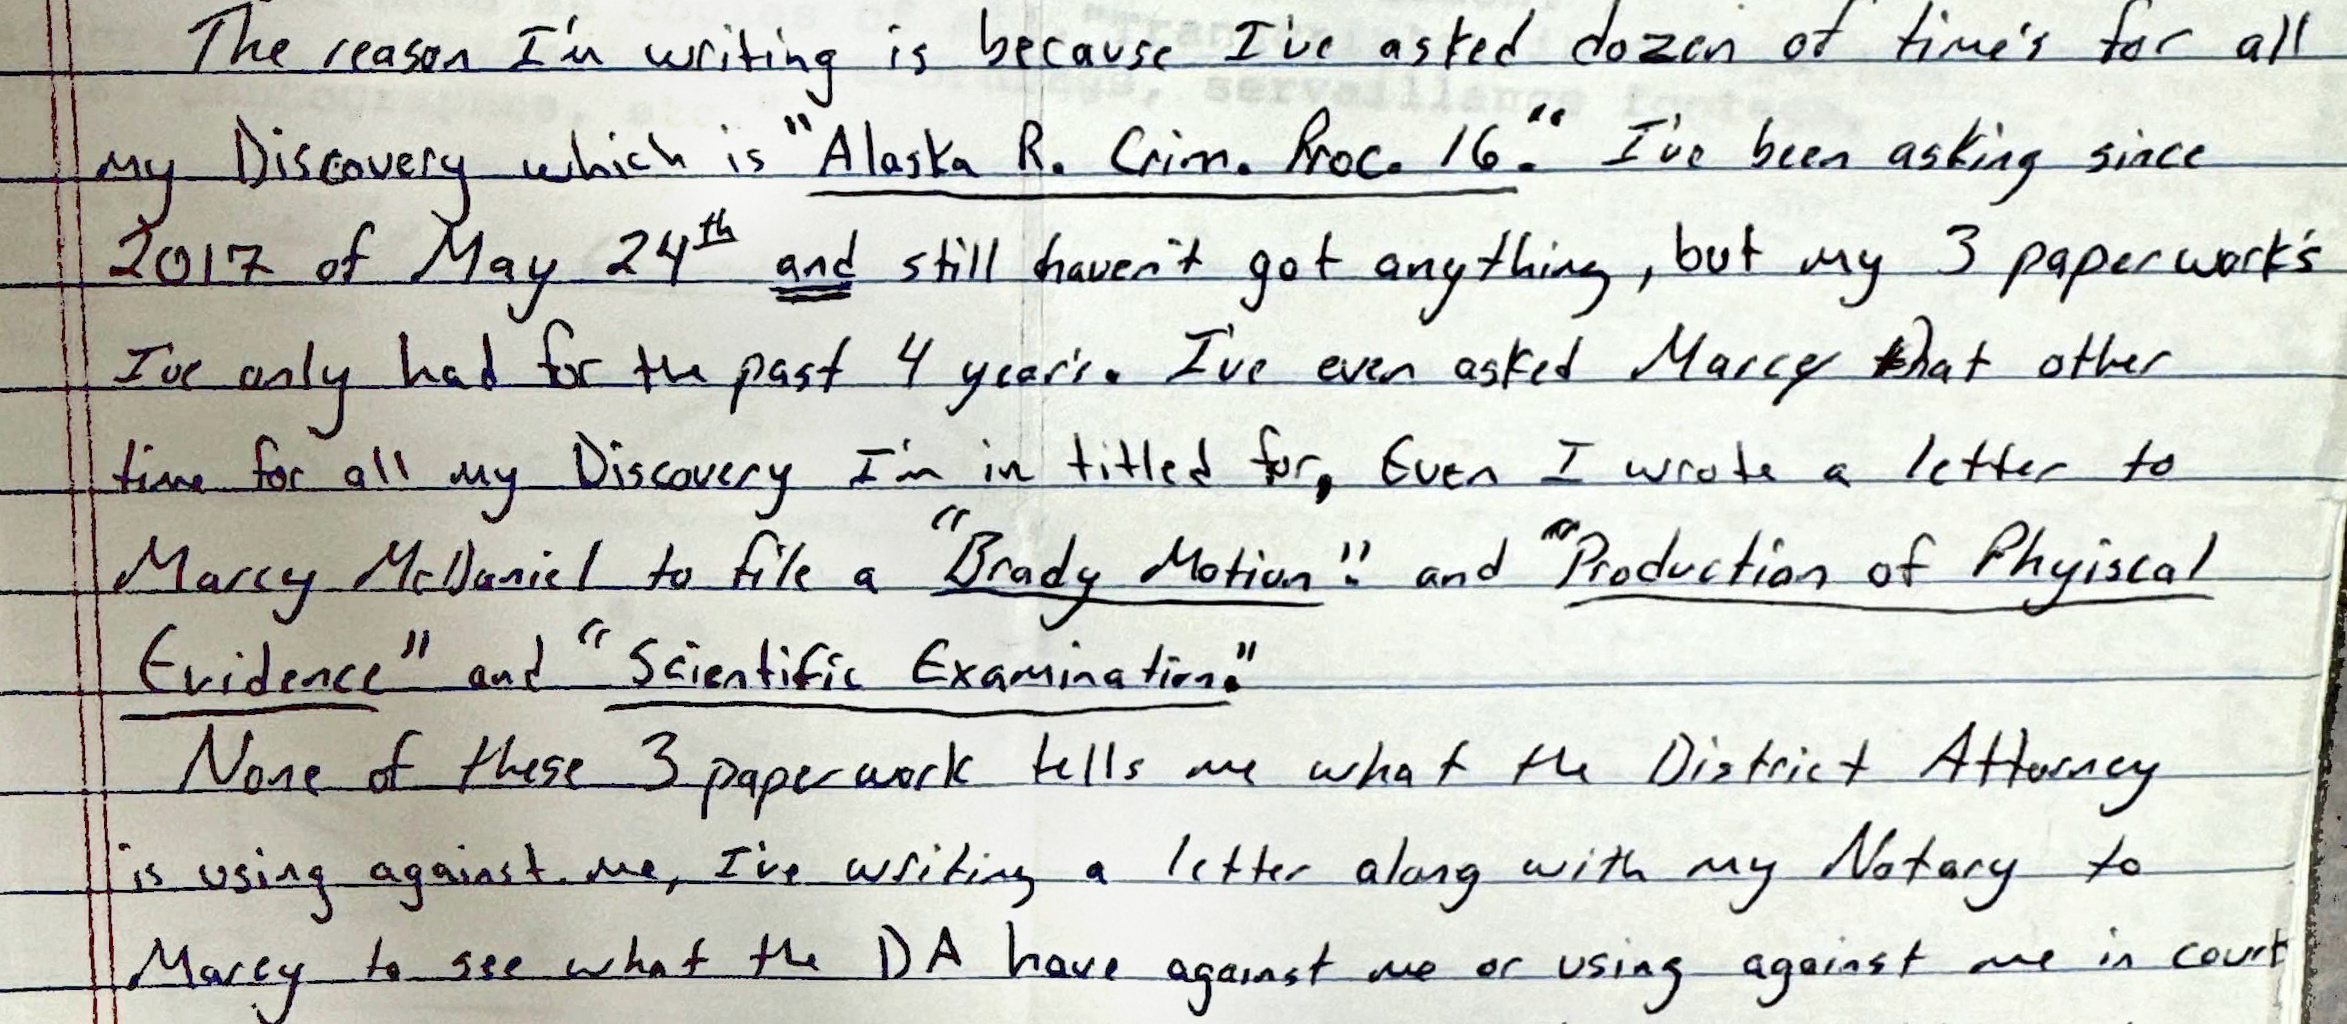 The reason I'm writing is because I've asked dozen of time's for all
my Discovery which is "Alaska R. Crim. Proc. 16." I've been asking since
2017 of May 24th and still haven't got anything, but my 3 paperwork's
I've only had for the past 4 year's. I've even asked Marcy that other
time for all my Discovery I'm in titled for, Even I wrote a letter to
Marcy McDaniel to file a "Brady Motion". and "Production of Phyiscal
Evidence" and "Scientific Examination."
None of these 3 paperwork tells me what the District Attorney
is using against me, I've writing a letter along with my Notary to
Marcy to see what the DA have against me or using against me in court